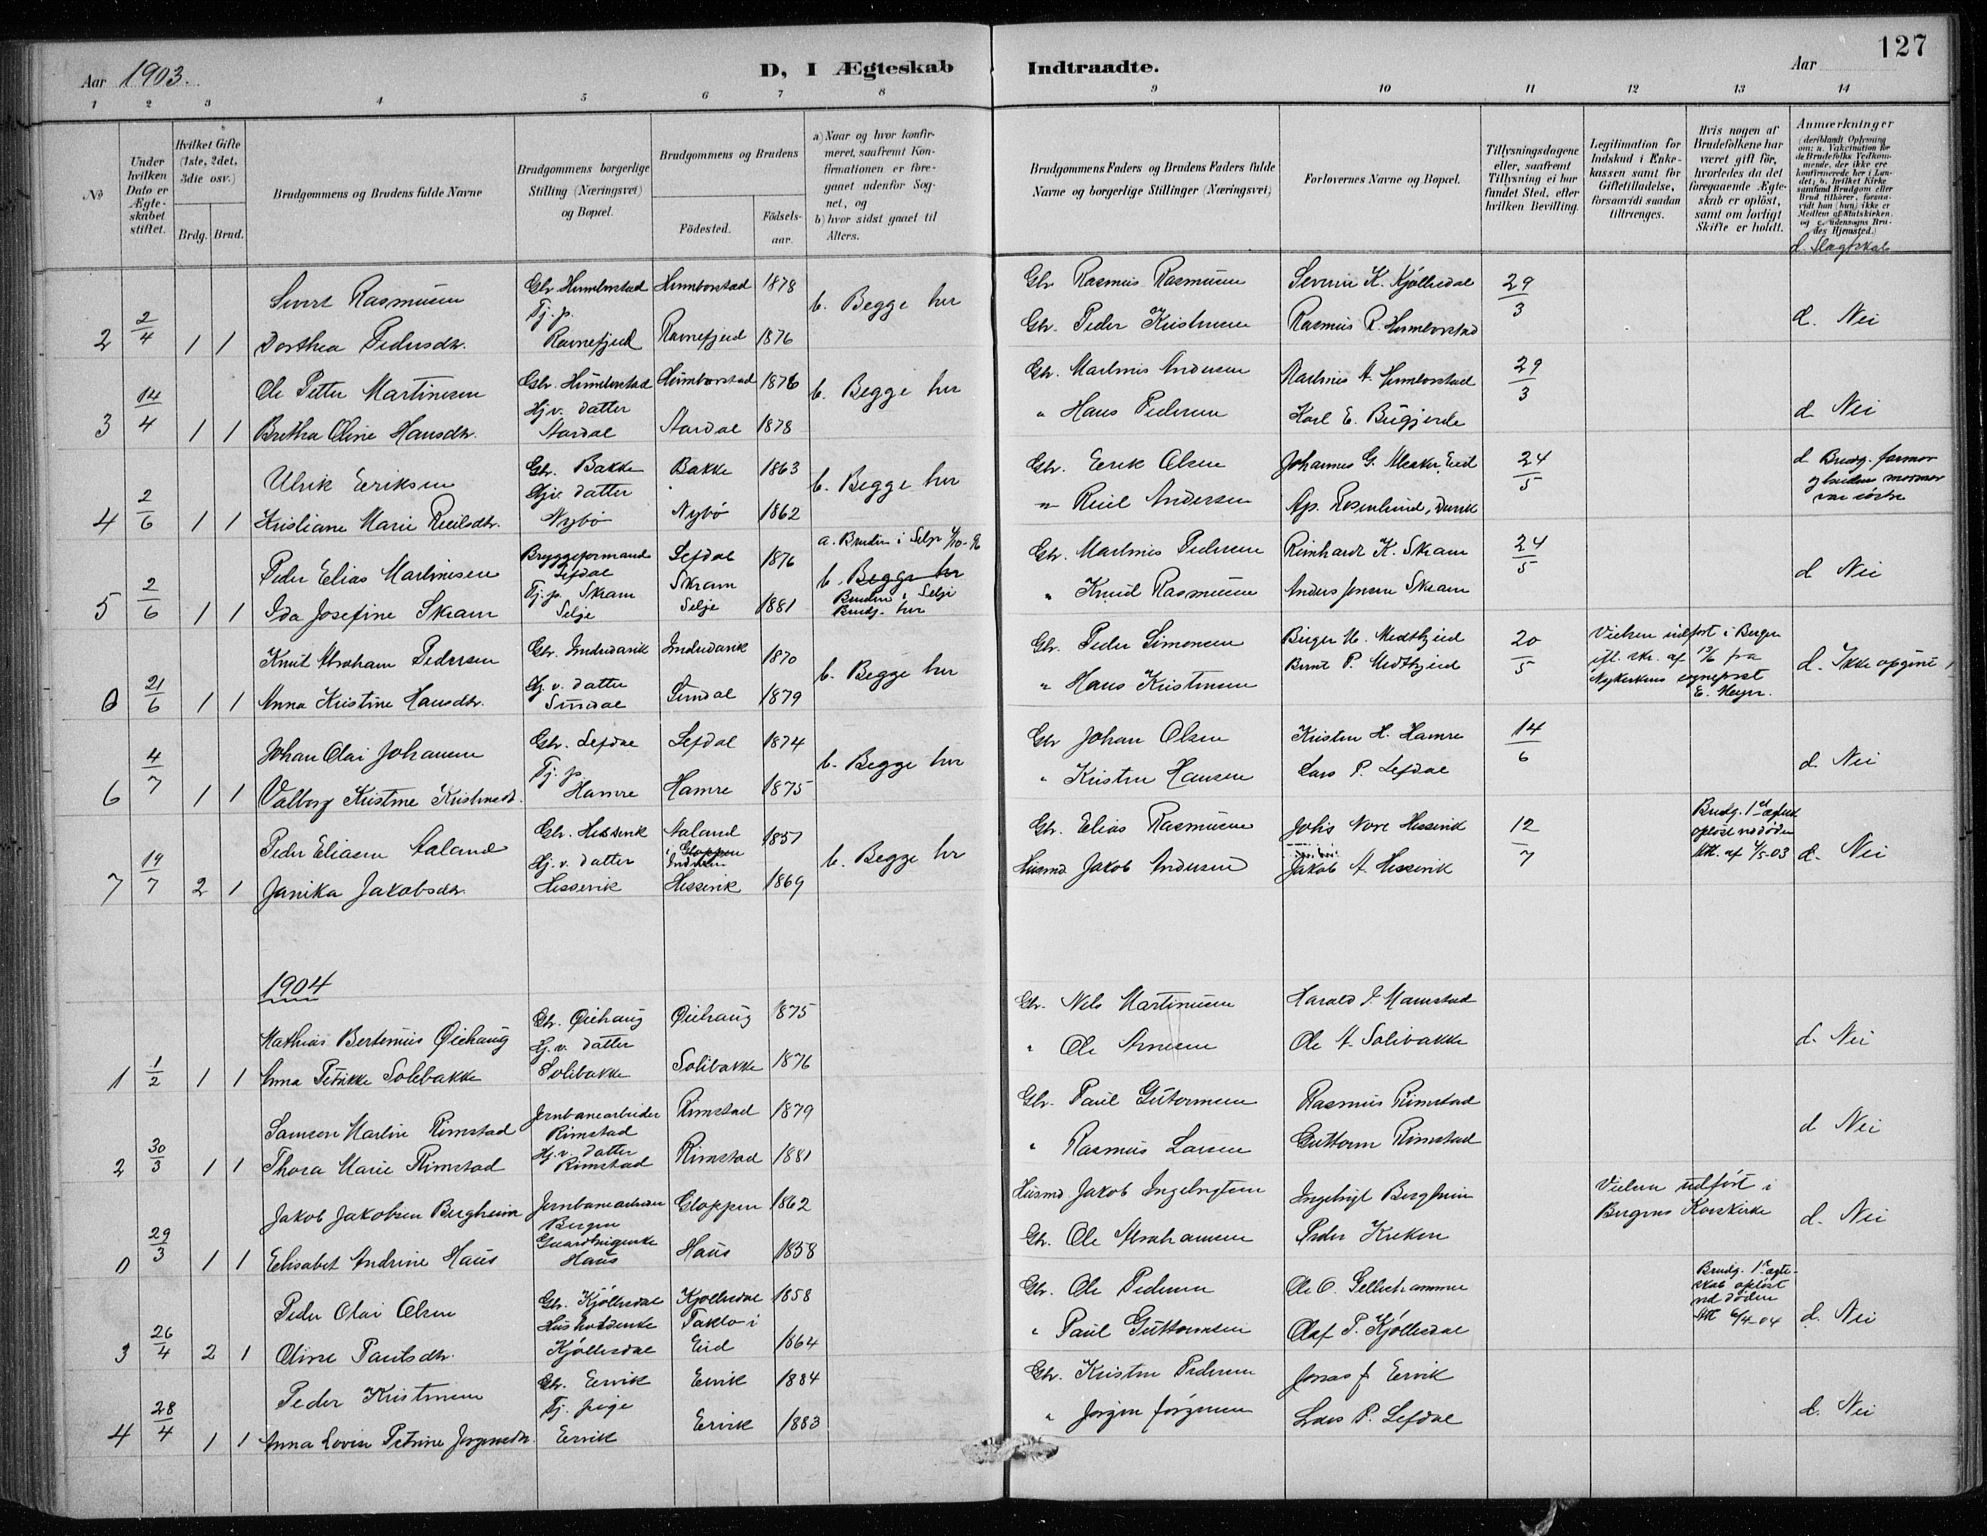 127
Aar 1903.
D, I Ægteskab Indtraadte.
Aar
1 2 3 4 5 6 7 8 9 10 11 12 13 14
No
Under hvilken Dato er Ægteskabet stiftet.
Hvilket Gifte (1ste, 2det, 3die osv.)
Brdg. Brud.
Brudgommens og Brudens fulde Navne
Brudgommens borgerlige Stilling (Næringsvei) og Bopæl.
Brudgommens og Brudens
Fødested.
Fødsels-aar.
a) Naar og hvor konfirmeret, saafremt Konfirmationen er foregaaet udenfor Sognet, og
b) hvor sidst gaaet til Alters.
Brudgommens Faders og Brudens Faders fulde Navne og borgerlige Stillinger (Næringsvei)
Forlovernes Navne og Bopæl.
Tillysningsdagene eller, saafremt Tillysning ei har fundet Sted, efter hvilken Bevilling.
Legitimation for Indskud i Enkekassen samt for Giftetilladelse, forsaavidt saadan tiltrænges.
Hvis nogen af Brudefolkene har været gift før, hvorledes da det foregaaende Ægteskab er opløst, samt om lovligt Skifte er holdt.
Anmærkninger (deriblandt Oplysning om: a. Vakcination for de Brudefolks Vedkommende, der ikke ere konfirmerede her i Landet; b. hvilket Kirkesamfund Brudgom eller Brud tilhører, forsaavidt han (hun) ikke er Medlem af Statskirken, og c. udensogns Brudes Hjemsted.)
d. Slægtskab
2 2/4 1 1
Sivert Rasmusen Gbr Humborstad Humborstad 1878 b. Begge her Gbr Rasmus Rasmusen Severin K. Kjøllesdal 29/3
Dorthea Pedersdtr. Tj. p. Ravnefjeld Ravnefjeld 1876 Gbr. Peder Kristensen Rasmus R. Humborstad d. Nei
3 14/4 1 1
Ole Petter Martinesen Gbr. Humborstad Humborstad 1876 b. Begge her Gbr. Martines Andersen Martines A. Humborstad 29/3
Brethe Oline Hansdtr. Hj. v. datter Aardal Aardal 1878 " Hans Pedersen Karl E. d. Nei
4 2/6 1 1
Ulrik Eriksen Gbr. Bakke Bakke 1863 b. Begge her Gbr. Erik Olsen Johannes G. Eid 24/5 d Brudg. farmor og brudens mormor var søstre
Kristiane Marie Reielsdtr. datter Nybø Nybø 1862 " Reiel Andersen Ap. Rosenlund,
5 2/6 1 1
Peder Elias Martinesen Bryggeformand Lefdal Lefdal 1876 a. Bruden i Selje b. Begge her Gbr. Martines Pedersen Reinhardt K. Skram 24/5
Ida Josefine Skram Tj. p. Skram Selje Skram Selje 1881 Bruden i Selje Brudg. her " Knud Rasmusen Anders Jensen Skram d Nei
0 21/6 1 1
Knut Abraham Pedersen Gbr. Indrevarik Indrevarik 1870 b. Begge her Gbr. Peder Simonsen Birger N. 20/5 Vielsen udført i Bergen
Anna Kristine Hansdtr. Hj. v. datter Sindal Sindal 1879 " Hans Kristensen Bernt P. Nykirkens sognepræst E. d. Ikke opgivet
6 4/7 1 1
Johan Olai Johansen Gbr. Lefdal Lefdal 1874 b. Begge her Gbr Johan Olsen Kristen H. Hamre 14/6
Valborg Kristine Kristensdtr. Tj. p. Hamre Hamre 1875 " Kristen Hansen Lars P. Lefdal d. Nei
7 19/7 2 1
Peder Eliasen Aaland Gbr. Hessevik Aaland i Gloppen Indviken 1851 b. Begge her Gbr. Elias Rasmusen Johs Nore Hessevik 12/7 Brudg. 1ste ægtesk. opløst ved døden
Janika Jakobsdtr. Hj. v. datter Hessevik Hessevik 1869 Husmd Jakob Andersen Jakob A Hessevik d. Nei
1904
1 1/2 1 1
Mathias Bertenius Øiehaug Gbr. Øiehaug Øiehaug 1875 Gbr. Nils Martinusen Harald J. Mamstad
Anna Petrikke Solibakke Hj. v. datter Solibakke Solibakke 1876 " Ole Arnesen Ole A. Solibakke d. Nei
2 30/3 1 1
Samson Martin Rimstad Jernbanearbeider Rimstad Rimstad 1879 Gbr. Paul Gutormsen Rasmus Rimstad
Thora Marie Rimstad Hj. v. datter Rimstad Rimstad 1881 " Rasmus Larsen Guttorm Rimstad d Nei
0 29/3 1 1
Jakob Jakobsen Bergheim Jernbanearbeider Bergen Gloppen 1862 Husmd. Jakob Ingebrigtsen Ingebrigt Bergheim Vielsen udført i Bergens Korskirke
Elisabet Andrine Haus Gaardbrugerske Haus Haus 1858 Gbr. Ole Abrahamsen Peder Kirken d. Nei
3 26/4 2 1
Peder Olai Olsen Gbr. Kjøllesdal Kjøllesdal 1858 Gbr. Ole Pedersen Ole O. Brudg. 1ste ægteskab opløst ved døden Att 6/4-04
Oline Paulsdtr. Husholderske Kjøllesdal Taklo i Eid 1864 " Paul Guttormsen Olaf P. Kjøllesdal d. Nei
4 28/4 1 1
Peder Kristensen Gbr. Ervik Ervik 1884 Gbr. Kristen Pedersen Jonas J. Ervik
Anna Lovise Petrine Jørgensdtr. Tj. pige Ervik Ervik 1883 " Jørgen Jørgensen Lars P. Lefdal d. Nei